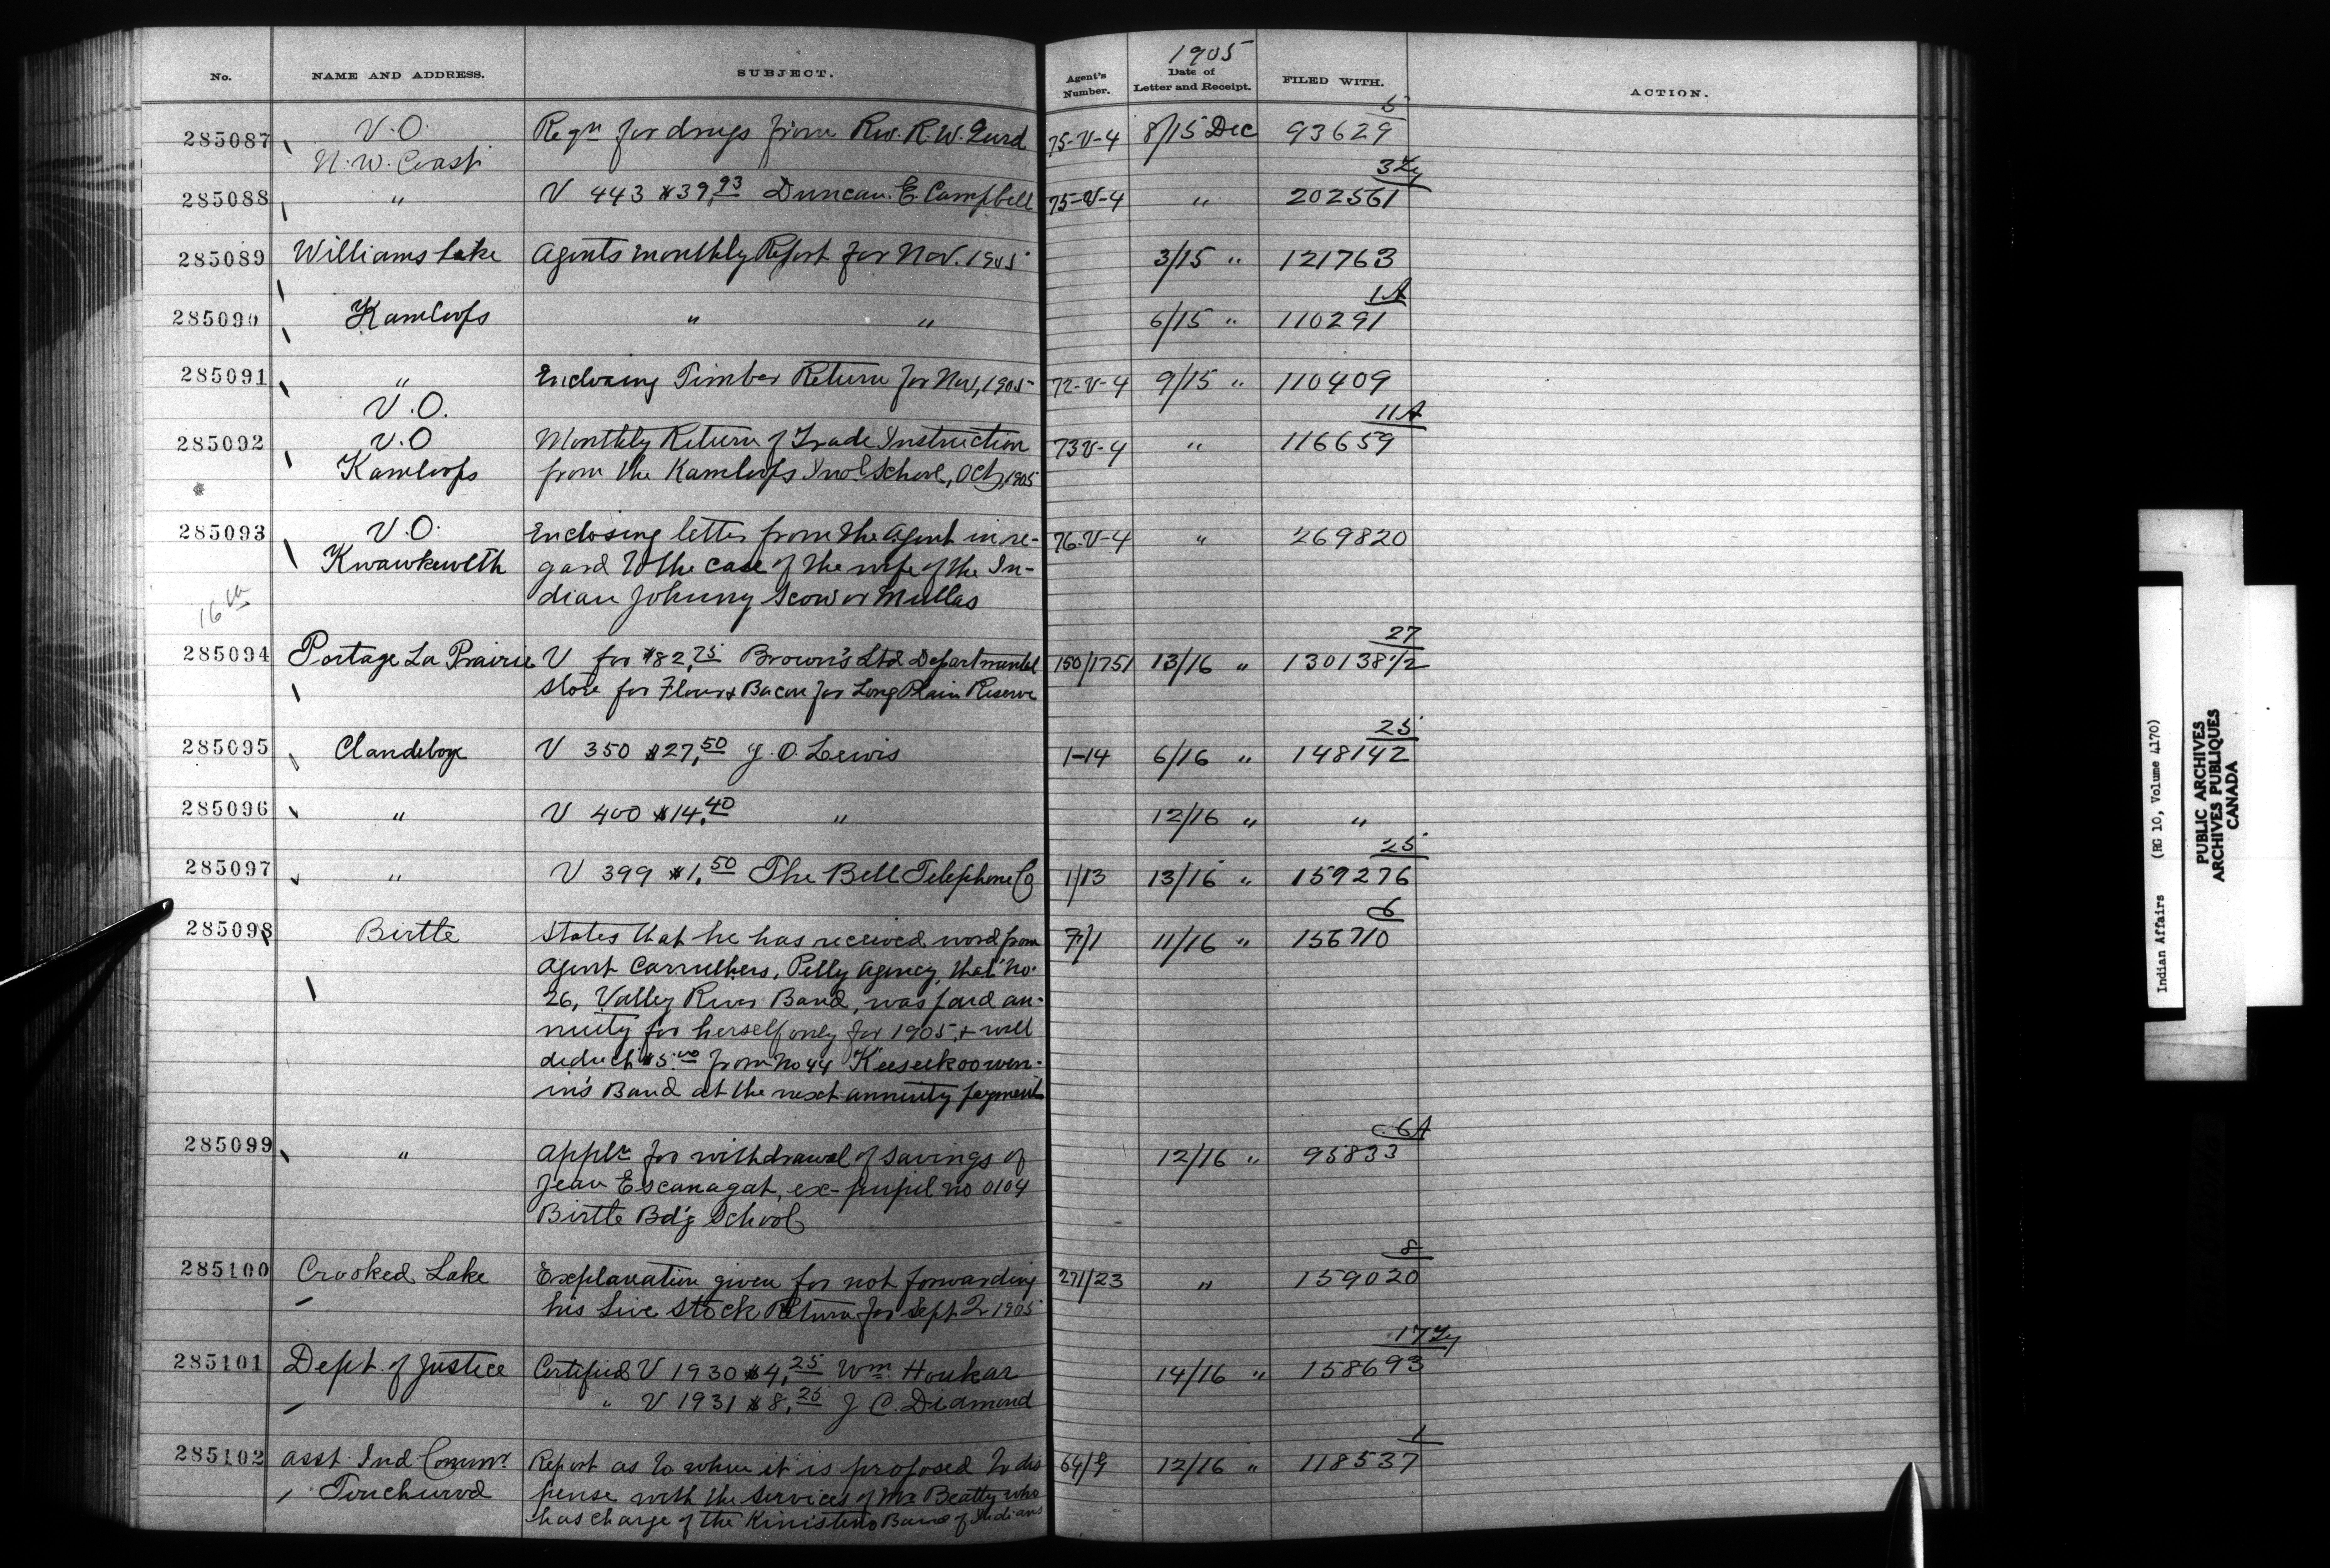 1905
No. NAME AND ADDRESS. SUBJECT. Agent's Number. Date of Letter and Receipt. FILED WITH. ACTION.
5
285087 V.O. Reqn for drugs from Rev. R.W. Gurd 75-V-4 8/15 Dec 93629
N.W. Coast
3
285088 " V 443 $39.93 Duncan E. Campbell 75-V-4 " 202561
285089 Williams Lake Agents monthly Report for Nov. 1905 3/15 " 121763
1A
285090 Kamloops " " 6/15 " 110291
285091 " Enclosing Timber Return for Nov, 1905 72-V-4 9/15 " 110409
V.O.
11A
285092 V.O Monthly Return of Trade Instruction 73V-4 " 116659
Kamloops from the Kamloops Indl School, Oct, 1905
285093 V.O. Enclosing letter from the Agent in re- 76-V-4 " 269820
Kwawkewlth gard to the case of the wife of the In-
dian Johnny Scow or Mullas
16th
27
285094 Portage La Prairie V for $82.75 Brown's Ltd Departmental 150/1751 13/16 " 130138 1/2
Store for Flour & Bacon for Long Plain Reserve
25
285095 Clandeboye V 350 $27.50 J.O. Lewis 1-14 6/16 " 148142
285096 " V 400 $14.40 " 12/16 " "
25
285097 " V 399 $1.50 The Bell Telephone Co 1/13 13/16 " 159276
6
285098 Birtle States that he has received word from 7/1 11/16 " 156710
Agent Carruthers, Pelly Agency, that No.
26, Valley River Band, was paid an-
nuity for herself only for 1905, & will
deduct $5.00 from No 44 "Keeseekoowen-
in's Band at the next annuity payment
6A
285099 " Appln for withdrawal of savings of 12/16 " 95833
Jean Escanagat, ex-pupil no 0104
Birtle Bd'g School
8
285100 Crooked Lake Explanation given for not forwarding 271/23 " 159020
his Live Stock Return for Sept Qr 1905
17
285101 Dept. of Justice Certified V 1930 $4.25 Wm. Houkar 14/16 " 158693
" V 1931 $8.25 J C. Diamond
1
285102 Asst. Ind Commr. Report as to when it is proposed to dis 64/G 12/16 " 118537
Touchwood pense with the services of Mr Beatty who
has charge of the Kinistino Band of Indians
Indian Affairs (RG 10, Volume 4170)
PUBLIC ARCHIVES
ARCHIVES PUBLIQUES
CANADA